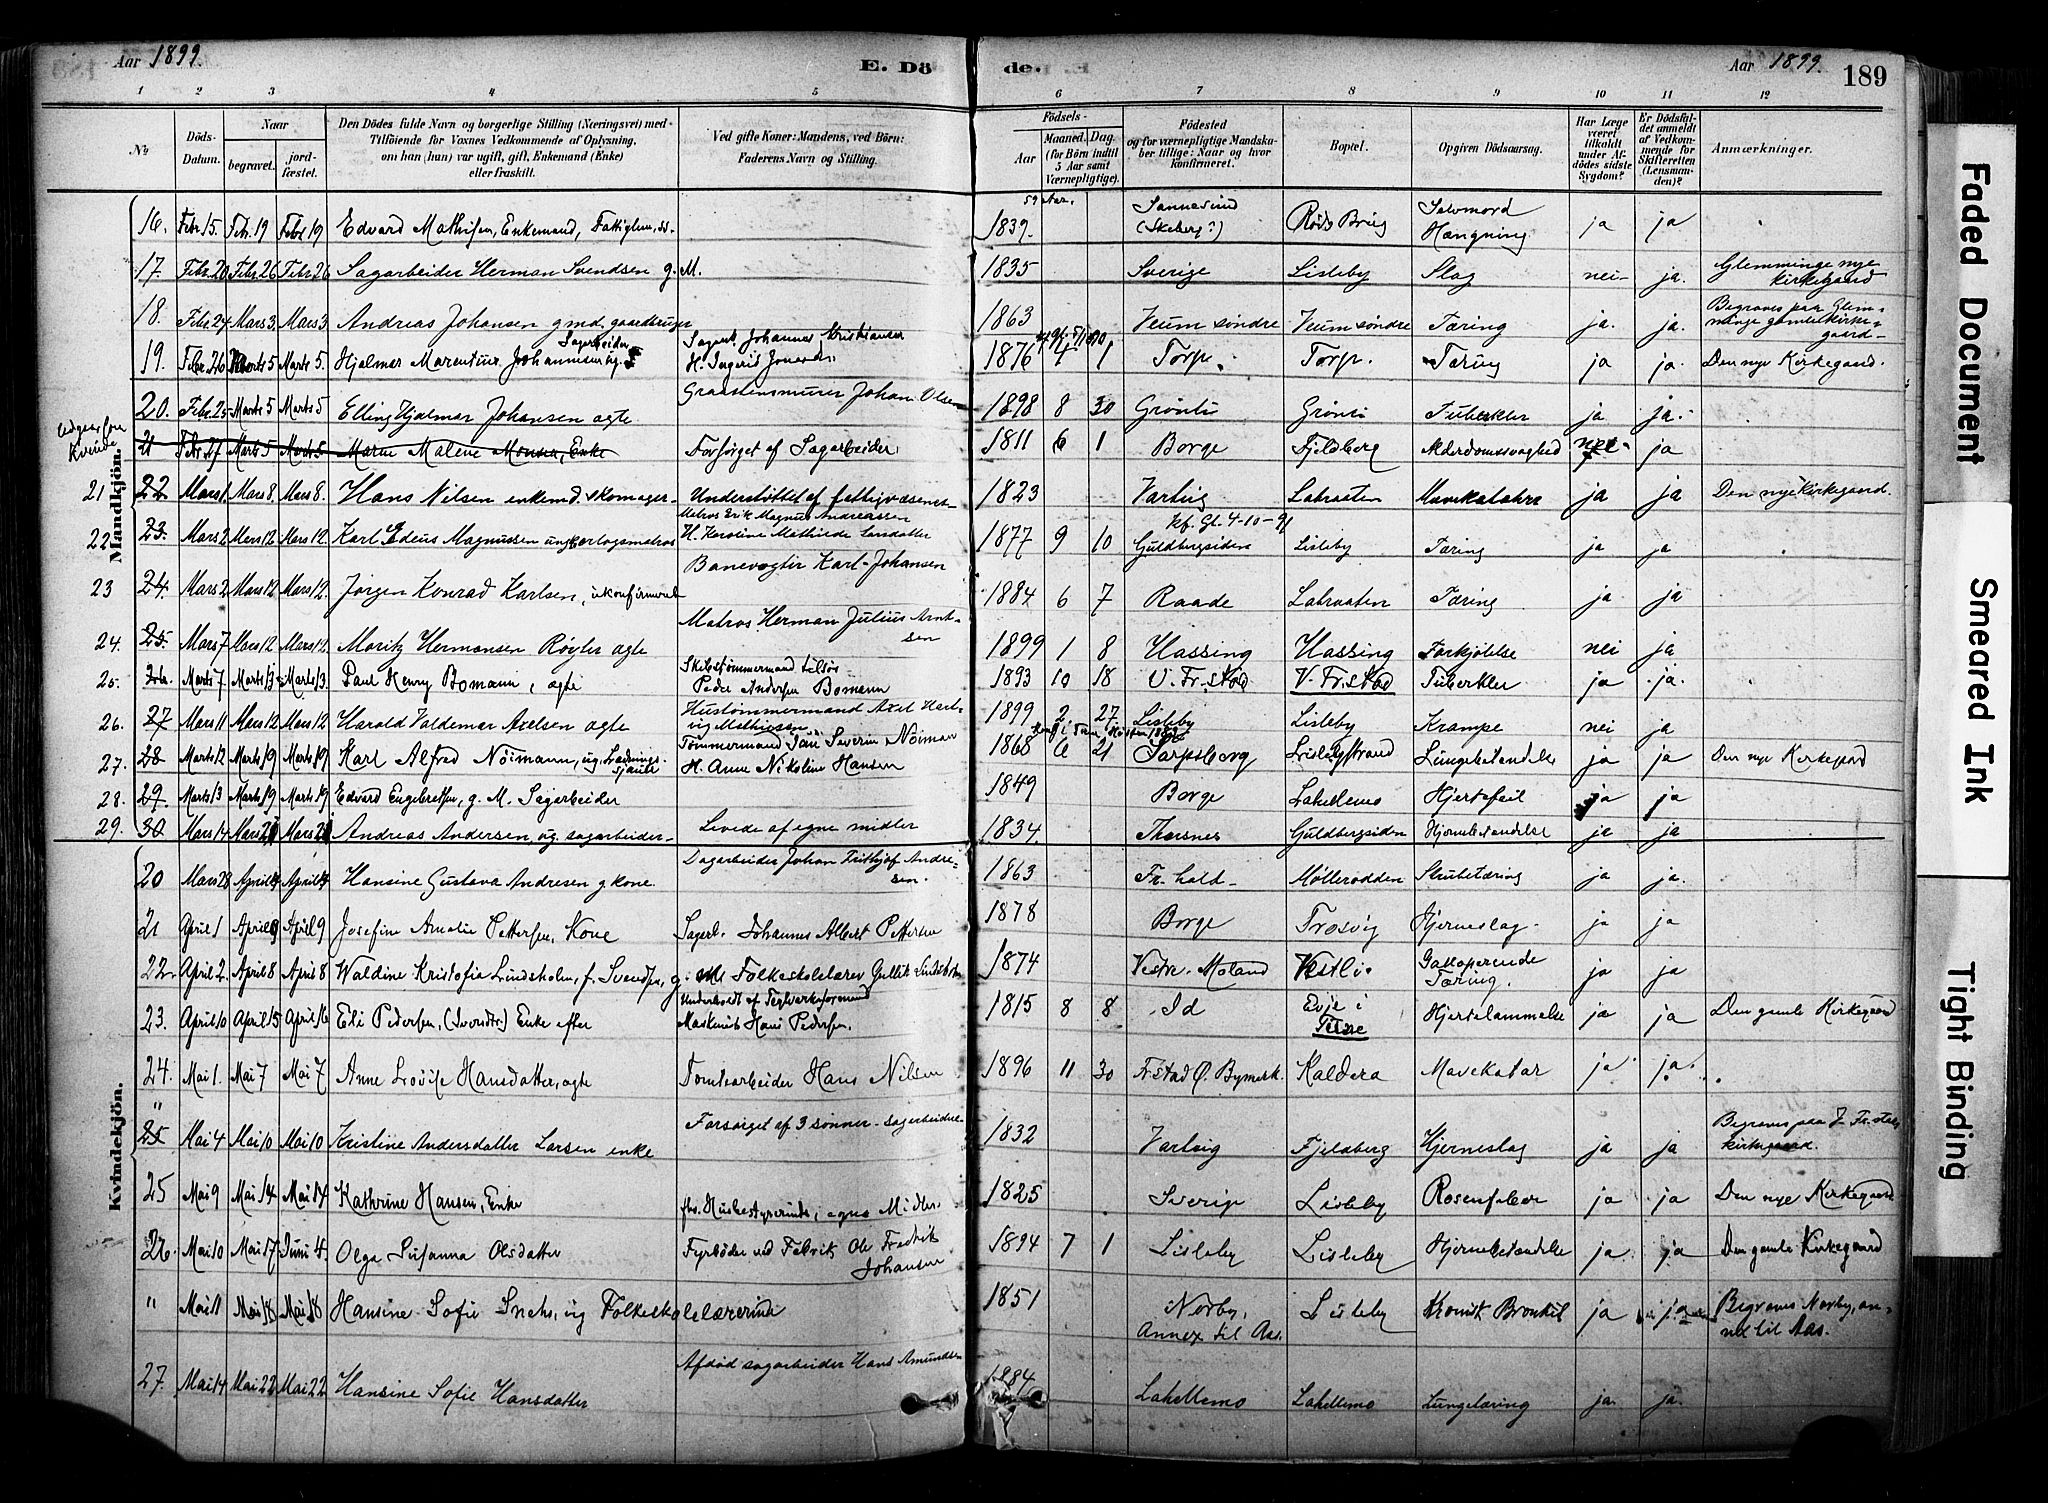 Aar 1899.
E. Dö
de.
Aar 1899.
189
1 2 3 4 5 6 7 8 9 10 11 12
No
Döds-Datum.
Naar
begravet.
jord-fæstet.
Den Dödes fulde Navn og borgerlige Stilling (Næringsvei) med
Tilföiende for Voxnes Vedkommende af Oplysning,
om han (hun) var ugift, gift, Enkemand (Enke)
eller fraskilt.
Ved gifte Koner: Mandens, ved Börn:
Faderens Navn og Stilling.
Födsels-
Aar
Maaned. Dag.
(for Börn indtil
5 Aar samt
Værnepligtige).
Födested
og for værnepligtige Mandska-
ber tillige: Naar og hvor
konfirmeret.
Bopæl.
Opgiven Dödsaarsag.
Har Læge
været
tilkaldt
under Af-
dödes sidste
Sygdom?
Er Dödsfal-
det anmeldt
af Vedkom-
mende for
Skifteretten
(Lensman-
den)?
Anmærkninger.
Mandkjön.
59 Aar.
16. Febr. 15. Febr. 19 Febr 19 Edvard Mathisen, Enkemand, 1839. Sannesund (Skeberg?) Röds Brug Selvmord Hængning ja ja
17. Febr. 20 Febr. 26 Febr. 26 Sagarbeider Herman Svendsen g. M. 1835 Sverige Lisleby Slag nei ja. Glemminge nye Kirkegaard
18. Febr. 24 Mars 3. Mars 3. Andreas Johansen gmd. gaardbruger 1863 Veum söndre Veum söndre Tæring ja. ja. Begraves paa Glemminge gamle Kirkegaard
19. Febr. 26 Marts 5 Marts 5. Hjalmar Marentius Johannesen ug. Sagarbeider Sagarb. Johannes Kristiansen H. Ingerid 1876 4 1 Torp. Torp. Tæring ja ja. Den nye Kirkegaard.
20. Febr. 25 Marts 5 Marts 5 Elling Hjalmar Johansen ægte. Graastensmurer Johan Olsen 1898 8 30 Grönli Grönli Tuberkler ja ja.
Udgaar som Kvinde
21 Febr. 27 Marts 5 Marts 5 Maren Malene Monsen, Enke Forsörget af Sagarbeider 1811 6 1 Borge Fjeldberg Alderdomssvaghed nei ja
21 22 Mars 1 Mars 8. Mars 8. Hans Nilsen enkemd. skomager Understöttet af fattigvæsenet 1823 Varteig Labraaten Mavekatahr ja ja Den nye Kirkegaard.
22 23. Mars 2 Mars 12 Mars 12. Karl Edeus Magnussen ungkar Matros Erik Magnus Andreassen H. Karoline Mathilde Larsdatter 1877 9 10 kf. Gl. 4-10-91 Guldbergsiden Lisleby Tæring ja ja
23 24. Mars 2 Mars 12 Mars 12. Jörgen Konrad Karlsen, ukonfirmeret Banevogter Karl Johansen 1884 6 7 Raade Labraaten Tæring ja ja
24. 25. Mars 7 Mars 12 Mars 12. Moritz Hermansen Röyler ægte Matros Herman Julius Arntsen 1899 1 8 Hassing Hassing Forkjölelse nei ja
25. 26. Marts 7 Marts 13 Marts 13. Paul Henry Bomann, ægte Skibstömmermand tilsjös Peder Andersen Bomann 1893 10 18 V. Fr.stad V. Fr.stad Tuberkler ja ja.
26. 27 Mars 11 Mars 12 Mars 12 Harald Valdemar Axelsen ægte Hustömmermand Axel Hartvig Mathiesen 1899 2 27 Lisleby Lisleby Krampe nei ja
27. 28 Marts 12 Marts 19 Marts 19 Karl Alfred Nöimann, ug. Ladningssjauer Tömmermand Severin Nöiman H. Anne Nikoline Hansen 1868 6 21 Sarpsborg Lislebystrand Lungebetændelse ja ja Den nye Kirkegaard
28. 29. Marts 13 Marts 19 Marts 19 Edvard Engebretsen, g. M. Sagarbeider 1849 Borge Lahellemo Hjertefeil ja ja
29. 30 Mars 14 Mars 21 Mars 21 Andreas Andersen, ug. sagarbeider Levede af egne midler 1834. Thorsnes Guldbergsiden Hjernebetændelse ja ja
Kvindekjön.
20 Mars 28 April 4 April 4 Hansine Gustava Andresen g kone. Dagarbeider Johan Frithjof Andresen. 1863 Fr. hald Möllerodden Strubetæring ja ja.
21 April 1 April 9 April 9 Josefine Amalie Pettersen, Kone Sagarb. Johannes Albert Pettersen 1878 Borge Trosvig Hjerneslag ja ja
22. April 2. April 8 April 8 Valdine Kristofia Lindholm, f. Svendsen, g. M Folkeskolelærer Gullik Lindholm 1874 Vestre Moland Vestli Galloperende Tæring. ja ja
23. April 10 April 15 April 16 Eli Pedersen, (Iversdtr.) Enke efter Underholdt af Teglverksformand Maskinist Hans Pedersen. 1815 8 8 Id Evje i Hjertelammelse ja ja Den gamle Kirkegaard
24. Mai 1. Mai 7 Mai 7 Anne Lovise Hansdatter, ægte Tomtearbeider Hans Nilsen 1896 11 30 Frstad Ö. Bymark. Kaldera Mavekatar ja ja.
" 25 Mai 4 Mai 10 Mai 10 Kristine Andersdatter Larsen enke Forsörget af 3 sönner - sagarbeidere 1832 Varteig Fjeldberg Hjerneslag ja ja Begraves paa Fr.stad kirkegaard.
25 Mai 9 Mai 14 Mai 14 Kathrine Hansen, Enke fhv. Husbestyrerinde, egne Midler 1825 Sverige Lisleby Rosenfeber ja ja Den nye Kirkegaard
26. Mai 10 Mai 17 Juni 4. Olga Susanna Olsdatter Fyrböder ved Fabrik Ole Fredrik Johansen 1894 7 1 Lisleby Lisleby Hjernebetændelse ja ja Den gamle Kirkegaard
" Mai 11 Mai 18 Mai 18 Hansine Sofie ug Folkeskolelærerinde 1851 Norby, Annex til Aas. Lisleby Kronisk Bronkit ja ja Begraves Norby, annex til Aas.
27. Mai 14 Mai 22 Mai 22 Hansine Sofie Hansdatter Afdöd sagarbeider Hans Amundsen 1884 Lahellemo Lahellemo Lungetæring ja ja.
Faded Document
Smeared Ink
Tight Binding